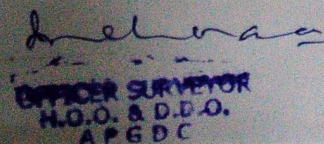 OFFICER SURVEYOR
H.O.O. & D.D.O.
A P G D C